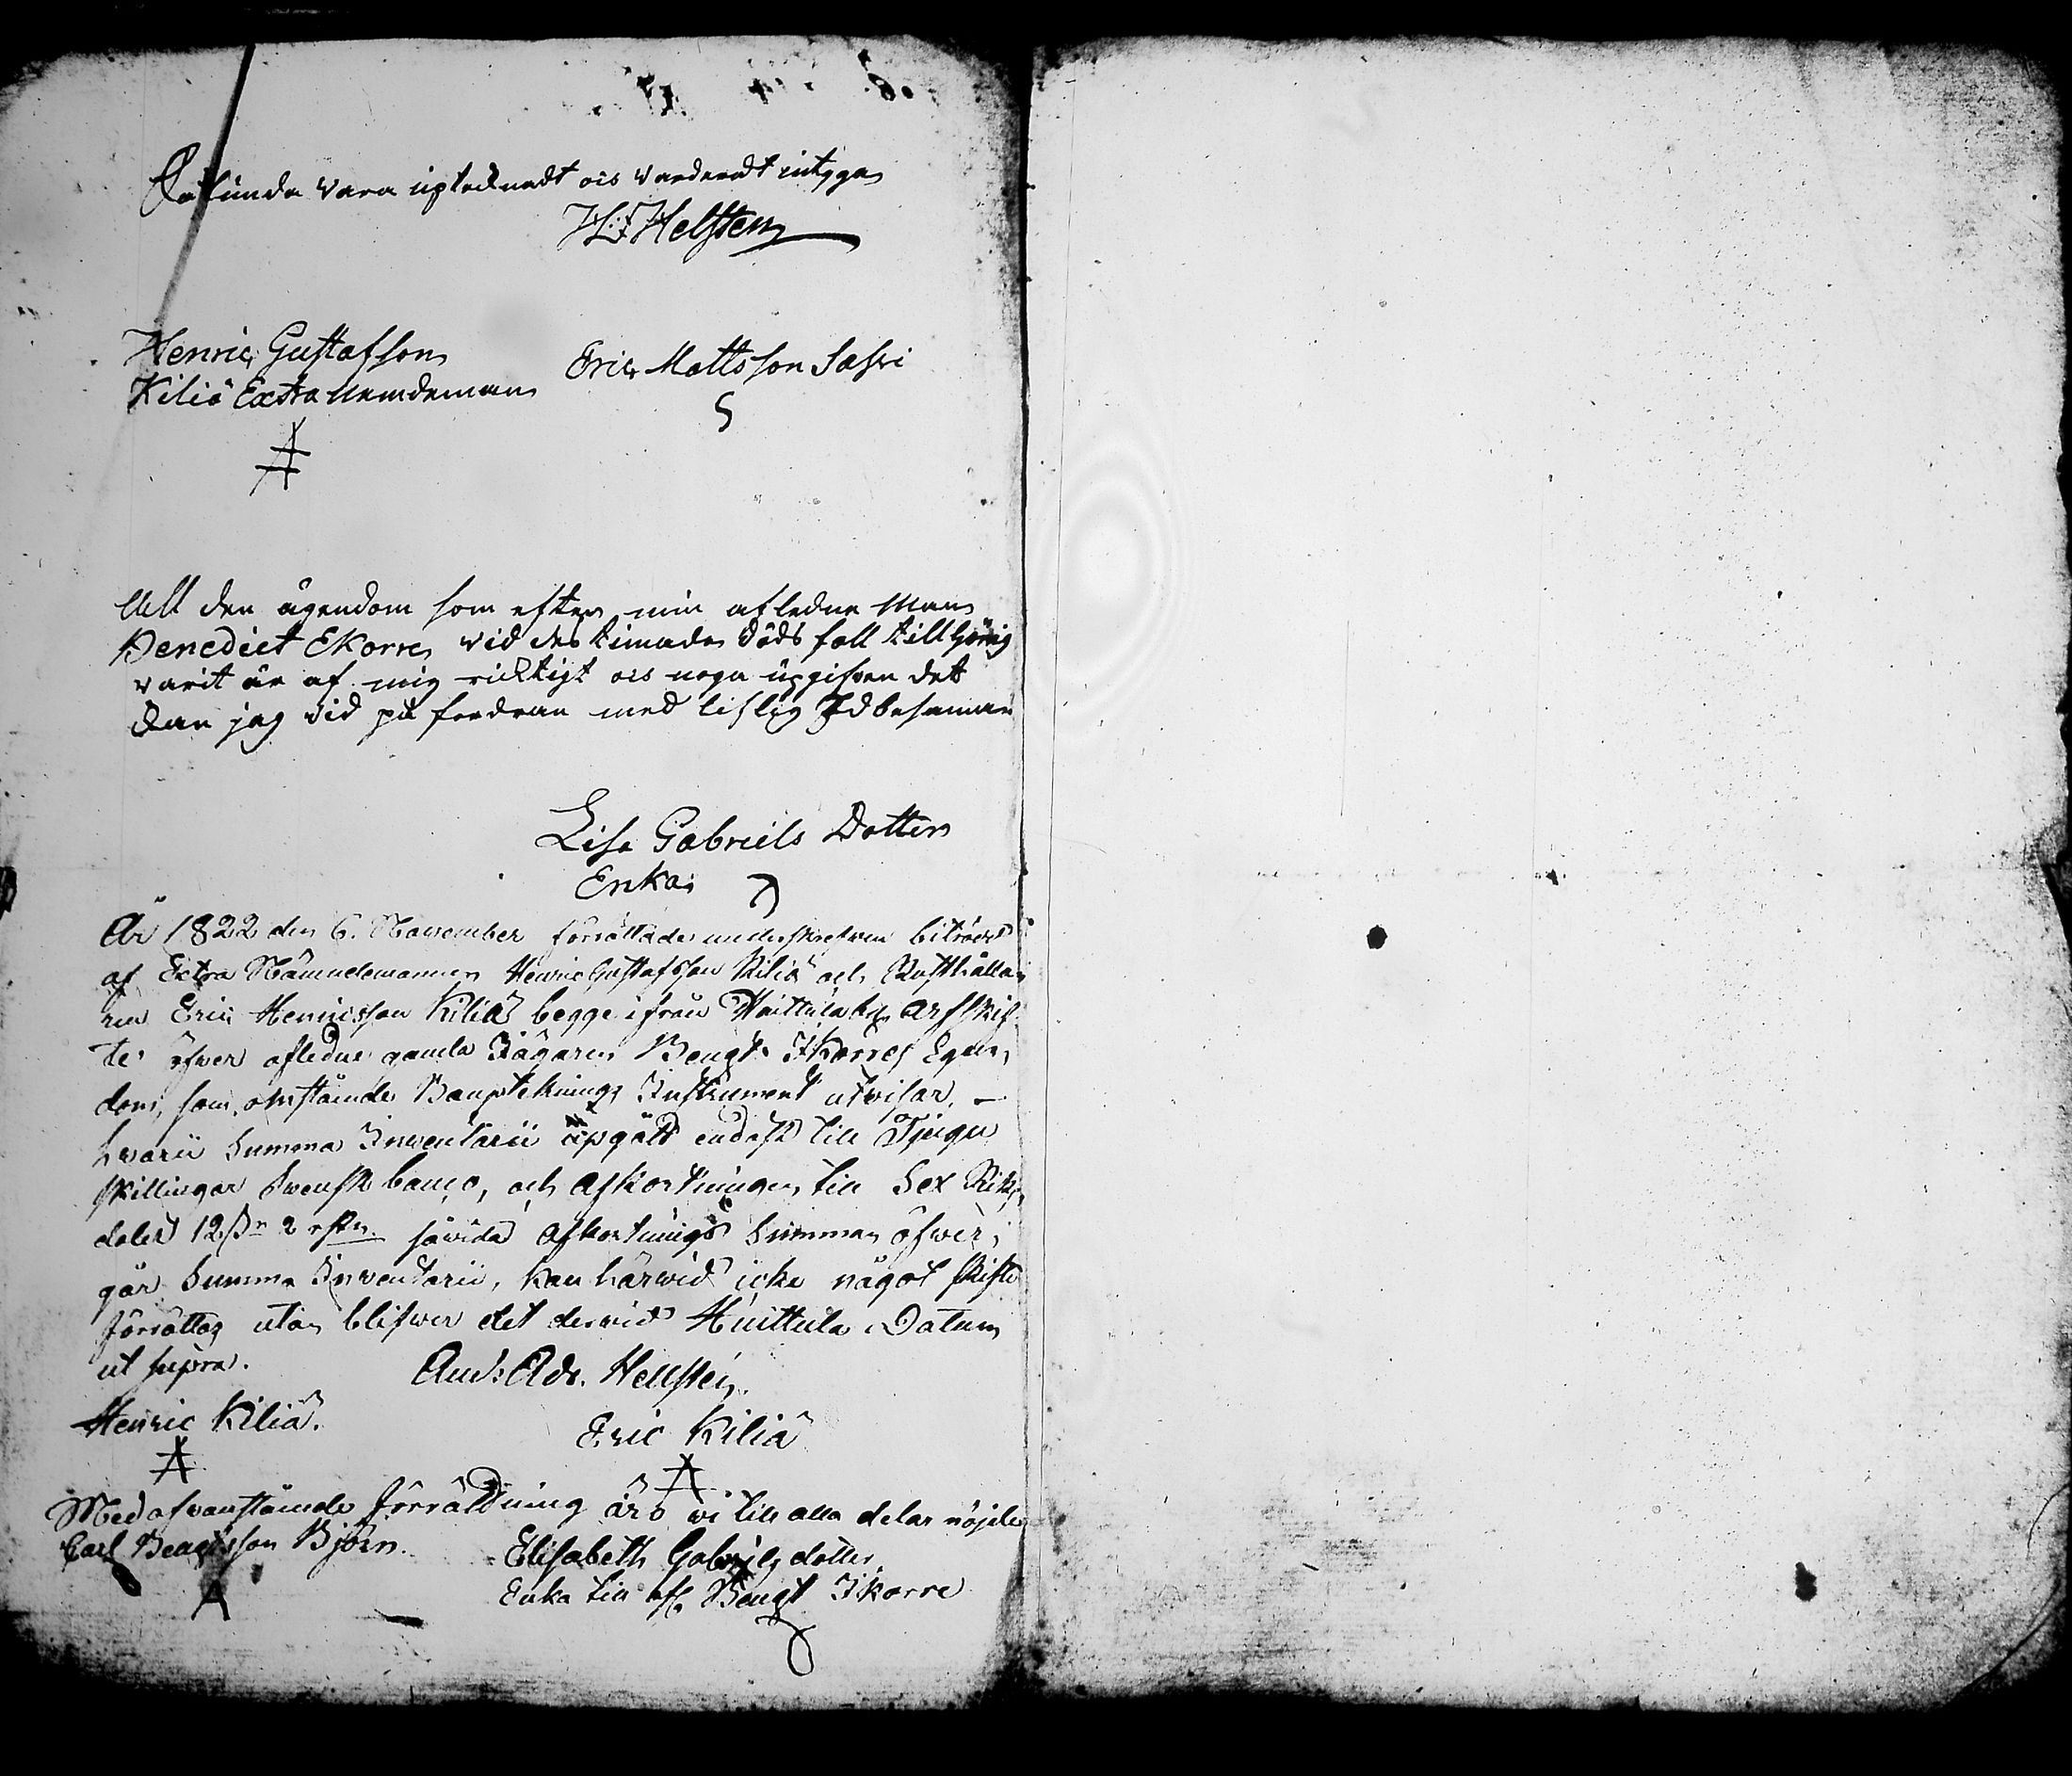 Sålunda vara uptecknadt och värderadt intygar
H: Helsten
Henric Gustafsson
Kiliä Extra Nemdeman
Eric Mattsson Sassi
Att den ägendom som efter min afledne Man
Benedict Ekorre vid des timade dödsfall tillhörig
varit är af mig ricktigt och noga upgifven det
kan jag vid på fordran med liflig Ed besanna
Lisa Gabriels Dotter
Enka
År 1822 den 6. November förrättades undertecknad biträdd
af Extra Nämndemannen Henric Gustafsson Kiliä och Rusthålla
ren Eric Henricsson Kiliä begge ifrån Huittula by, Arfskif
te öfwer afledne gamla Jägaren Bengt Ikorres Egen
dom, som omstående Boupteknings Instrument utvisar, –
hvarii Summa Inventarii upgått endast till Tjugu
skillingar Swensk banco, och afkortningen till Sex Riks
daler 12 sk 2 rst. såvida Afkortnings Summan öfwer
går Summa Inventarii, kan härwid icke något skifte
förrättas utan blifwer det derwid Huittula Datum
ut supra.
And: Adr. Hellsten
Henric Kiliä.
Eric Kiliä
Med ofvanstående förrättning äro vi till alla delar nöjde
Carl Bengtsson Björn.
Elisabeth Gabriels dotter
Enka till afl. Bengt Ikorre